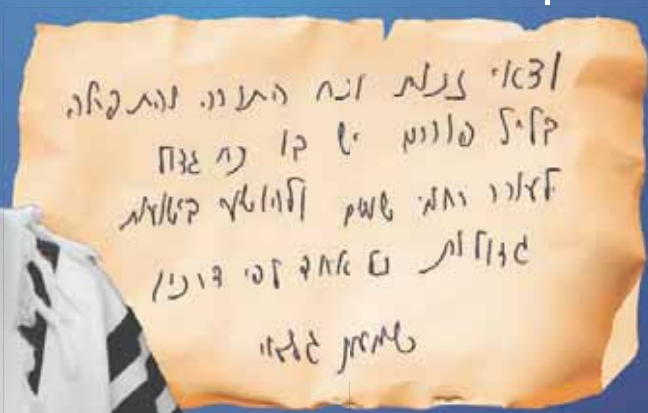 ודאי זכות וכח התורה והתפילה
בליל פורים יש בו כח גדול
לעורר רחמי שמים ולהושע בישועות
גדולות כל אחד לפי צרכיו
שמעון גלאי